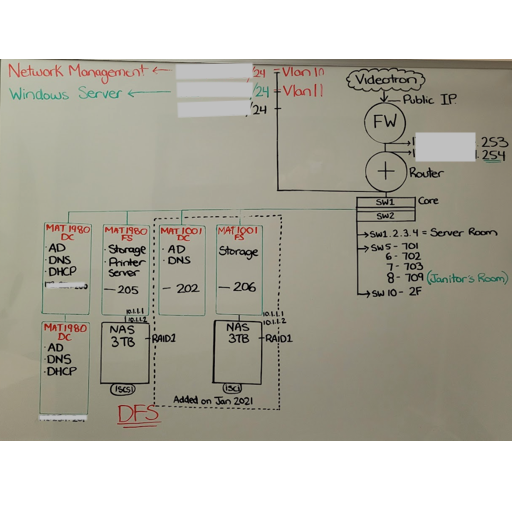 Network Management ←
/24 = Vlan 10
Windows Server ←
/24 = Vlan 11
/24
Videotron
Public IP
FW
.253
.254
+
Router
SW1
Core
SW2
→ SW1.2.3.4 = Server Room
→ SW5 - 701
6 - 702
7 - 703
8 - 709 (Janitor's Room)
→ SW10 - 2F
MAT1980
DC
• AD
• DNS
• DHCP
MAT1980
FS
• Storage
• Printer
Server
— 205
MAT1001
DC
• AD
• DNS
— 202
MAT1001
FS
Storage
— 206
10.1.1.1
10.1.1.2
10.1.1.1
10.1.1.2
MAT1980
DC
• AD
• DNS
• DHCP
NAS
3TB
RAID1
iSCSI
NAS
3TB
RAID1
Added on Jan 2021
DFS